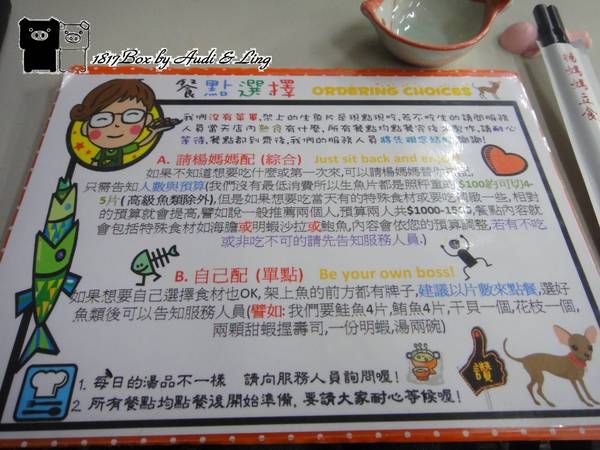 1817Box.by Audi & Ling
餐點選擇 ORDERING CHOICES
我們沒有菜單,架上的生魚片是現點現吃,若不吃生的請問服務
人員當天店內熟食有什麼,所有餐點均點餐完後 請耐心
等待,餐點都到齊後,我們的服務人員
A. 請楊媽媽配 (綜合) Just sit back and enjoy!
如果不知道想要吃什麼或第一次來,可以請楊媽媽替
只需告知人數與預算(我們沒有最低消費所以生魚片都是照秤重的 $100約可切4-
5片(高級魚類除外),但是如果想要吃當天有的特殊食材或要精緻一些,相對
的預算就會提高,譬如說一般推薦兩個人,預算兩人共$1000-1500,餐點內容就
會包括特殊食材如海膽或明蝦沙拉或鮑魚,內容會依您的預算調整,若有不吃
或非吃不可的請先告知服務人員.)
B. 自己配 (單點) Be your own boss!
如果想要自己選擇食材也OK,架上魚的前方都有牌子,建議以片數來點餐,選好
魚類後可以告知服務人員(譬如: 我們要鮭魚4片,鮪魚4片,干貝一個,花枝一個,
兩顆甜蝦捏壽司,一份明蝦,湯兩碗)
讚
1. 每日的湯品不一樣 請向服務人員詢問喔!
2. 所有餐點均點餐後開始準備, 要請大家耐心等候喔!
楊媽媽立食